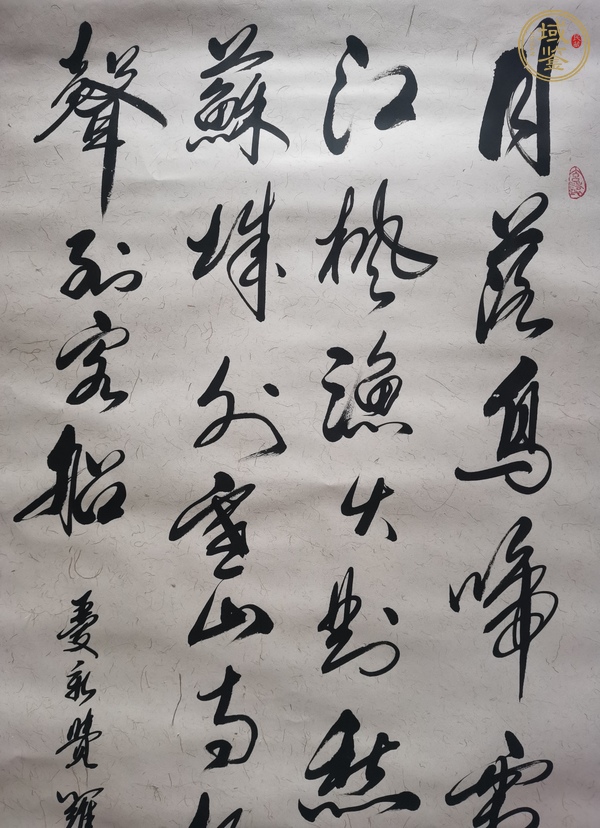 月落烏啼霜
江楓漁火對愁
蘇城外寒山寺
聲到客船
愛新覺羅
域鉴